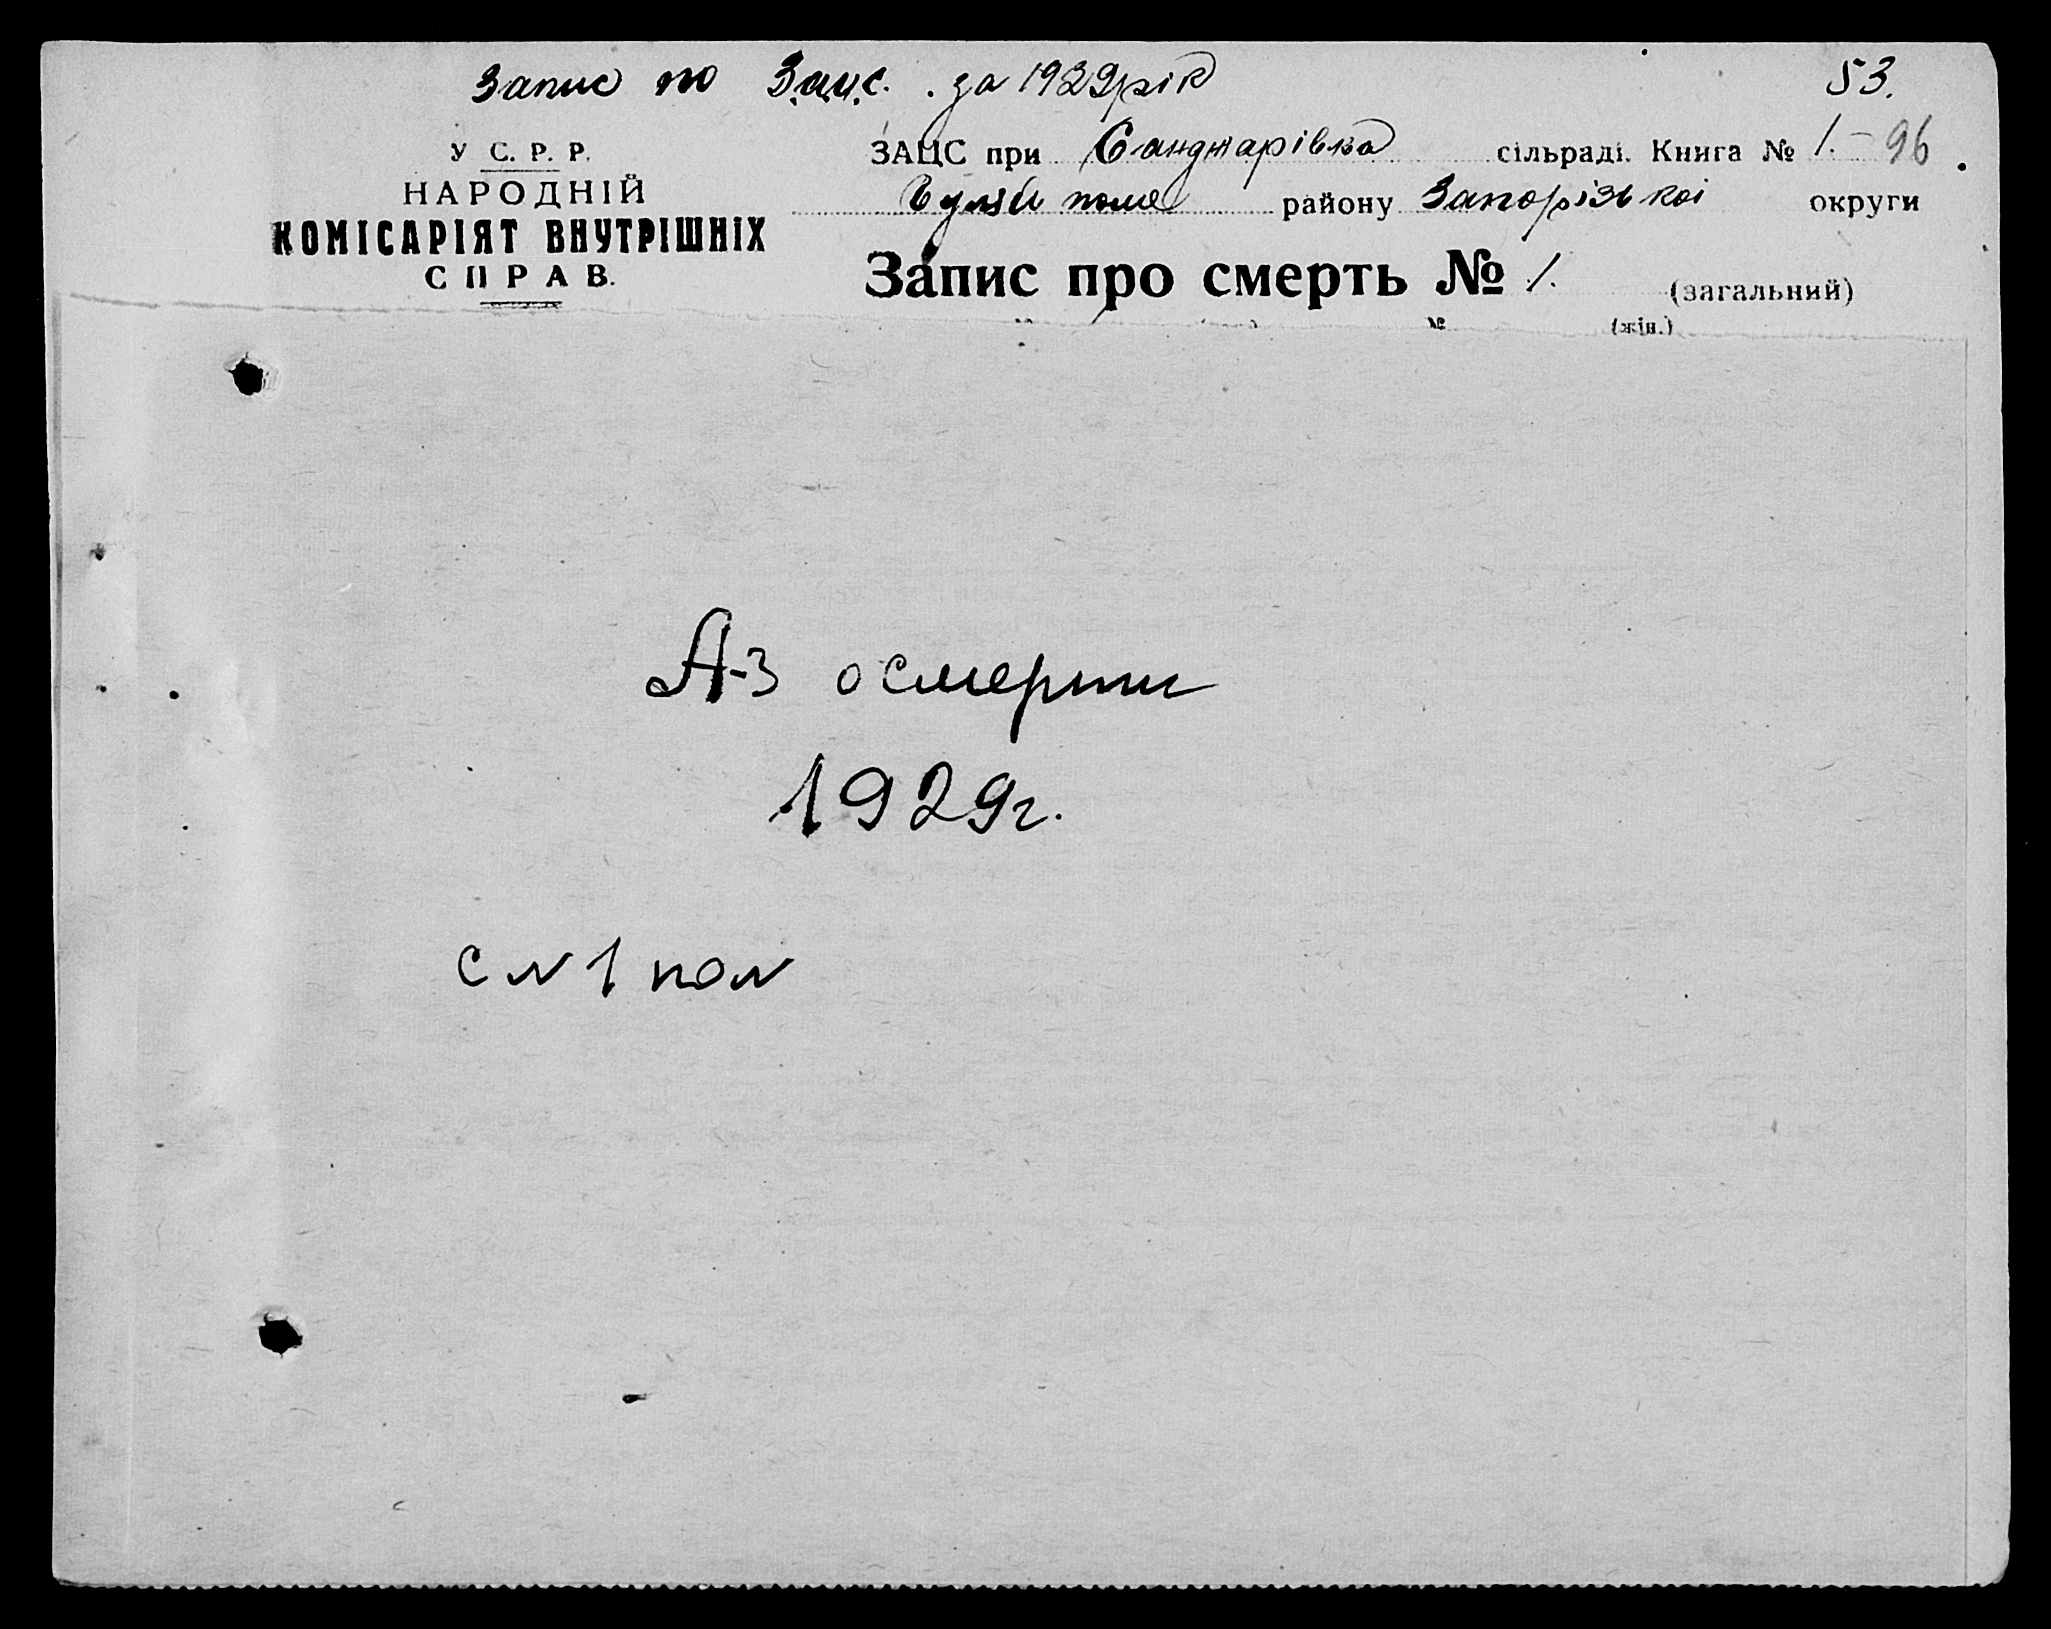 Запис по З.а.ц.с. за 1929 рік 53.
У С. Р. Р.
НАРОДНІЙ
КОМІСАРІЯТ ВНУТРІШНІХ
СПРАВ.
ЗАЦС при Санджарівка сільраді. Книга № 1. - 96
Гуляй поле району Запорізькоі округи
Запис про смерть № 1. (загальний)
№ (жін.)
А-З о смерти
1929г.
с № 1 по №